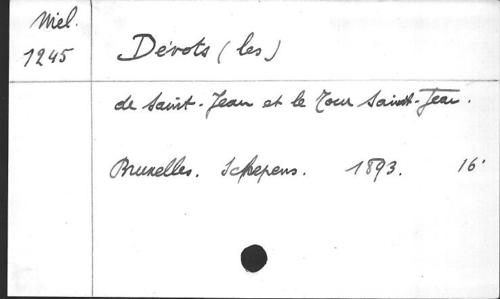 Miel.
1245
Dévots (les)
de Saint-Jean et le Tour Saint-Jean.
Bruxelles. Schepens. 1893. 16°